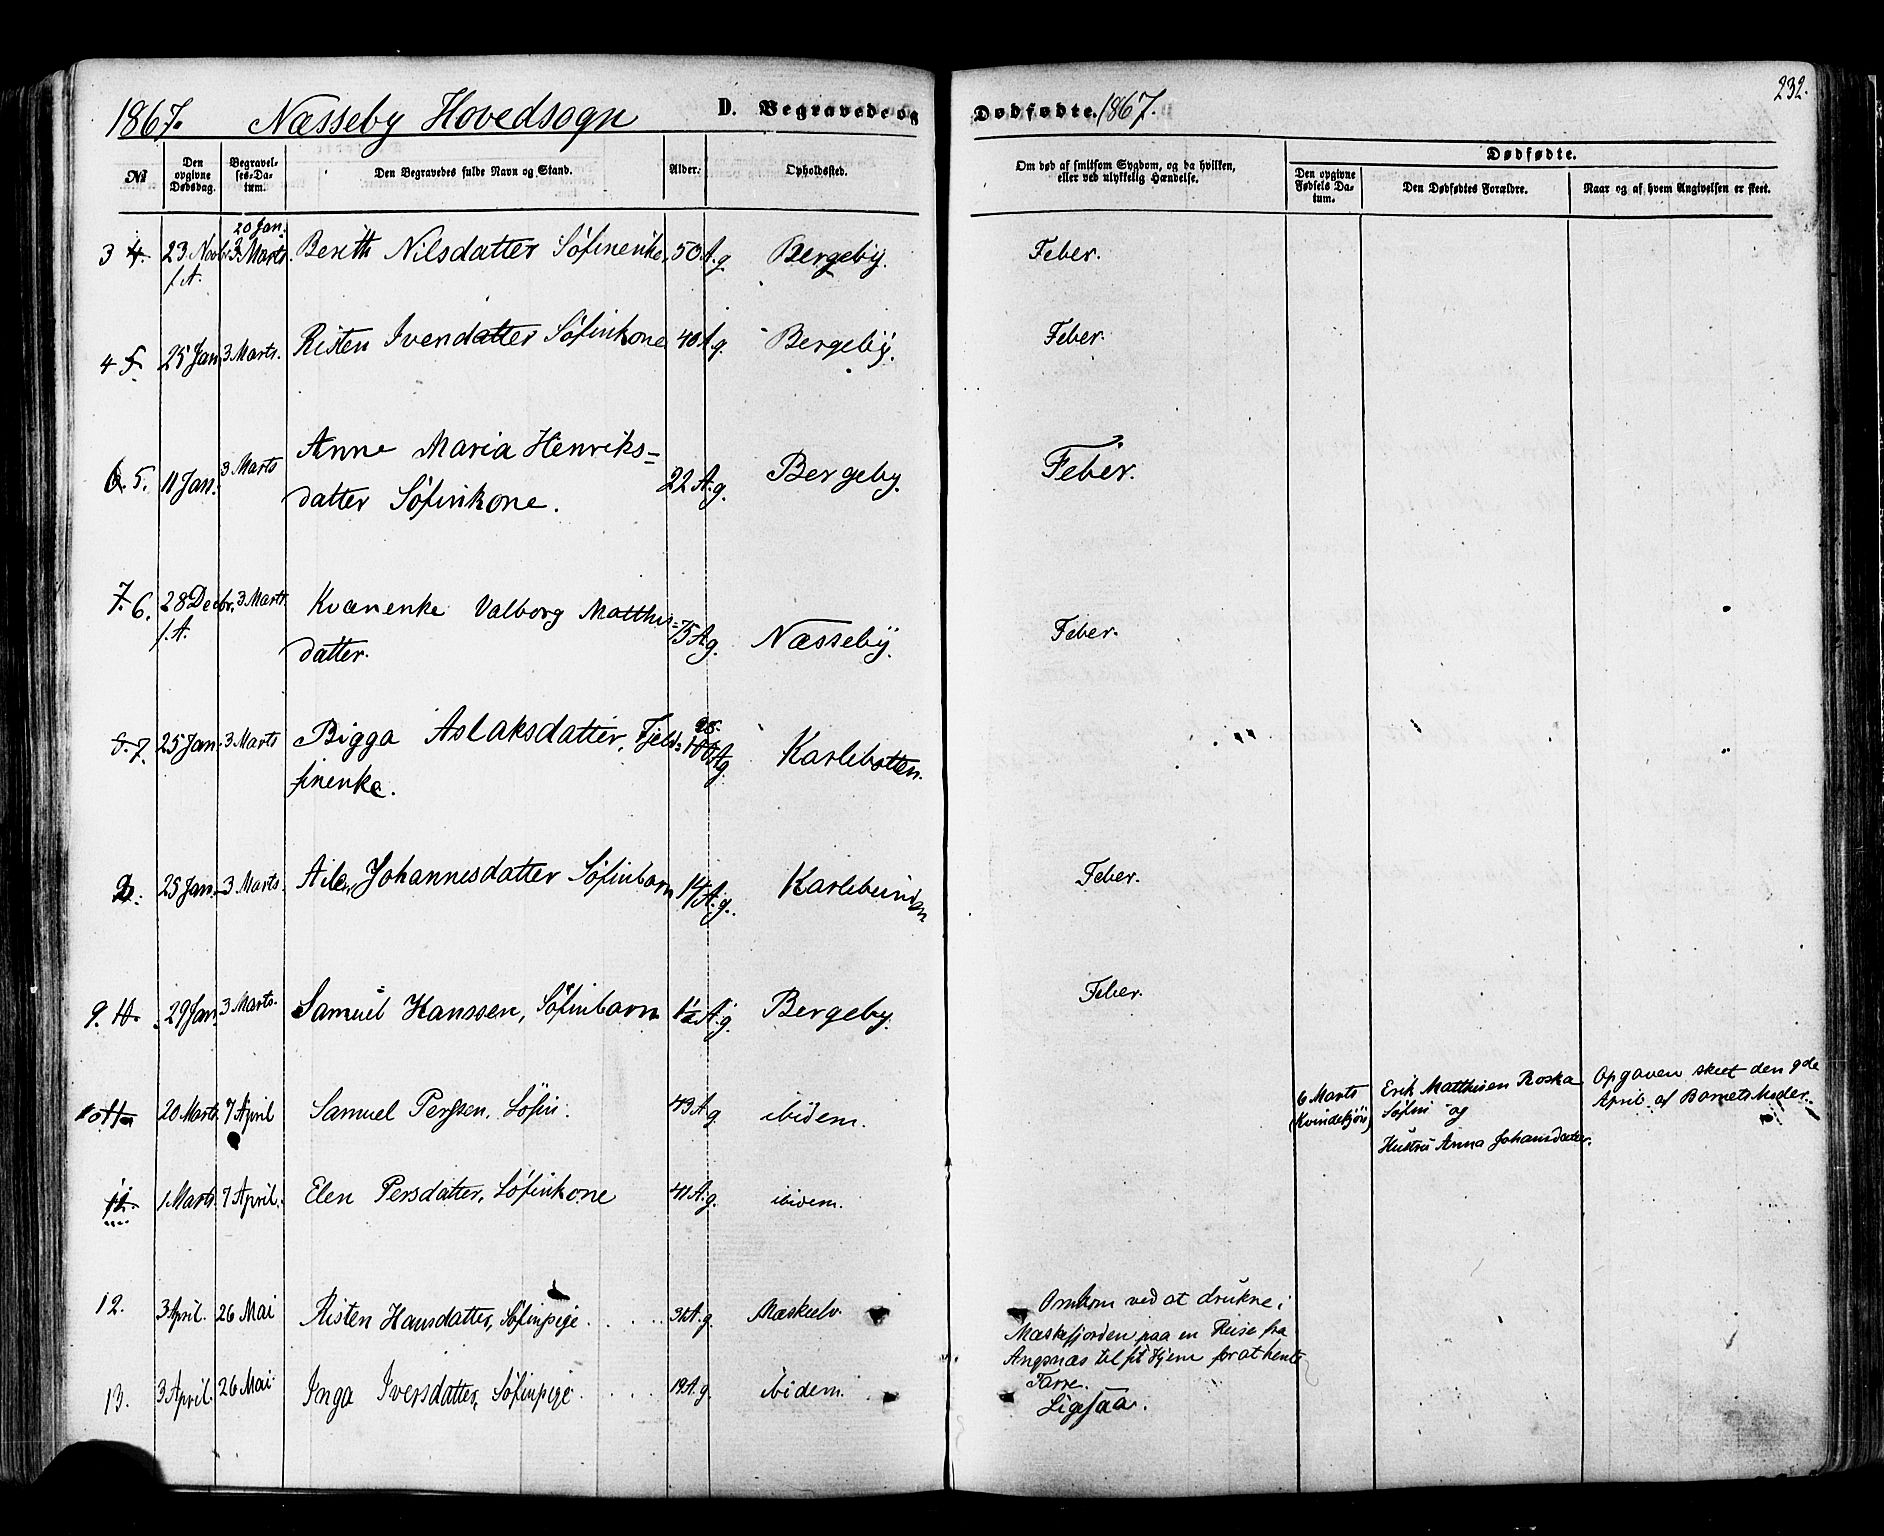 232.
1867. Næsseby Hovedsogn D. Begravede og Dødfødte. 1867.
No Den opgivne Dødsdag. Begravelses-Datum. Den Begravedes fulde Navn og Stand. Alder. Opholdssted. Om død af smitsom Sygdom, og da hvilken, eller ved ulykkelig Hændelse. Dødfødte.
Den opgivne Fødsels Datum. Den Dødfødtes Forældre. Naar og af hvem Angivelsen er skeet.
20 Jan.
3 4. 23 Novbr. 3 Marts. Berith Nilsdatter Søfinenke, 50 A. g. Bergeby. Feber.
f. A.
4 5. 25 Jan. 3 Marts. Risten Ivendatter Søfinkone 40 A. g. Bergeby. Feber.
6. 5. 11 Jan. 3 Marts Anne Maria Henriks= 22 A. g. Bergeby. Feber.
datter Søfinkone.
7. 6. 28 Decbr. 3 Marts Kvænenke Valborg Matthis= 75 A g. Næsseby. Feber.
f. A. datter.
8. 7. 25 Jan. 3 Marts Bigga Aslaksdatter, Fjeld= 100 A g. Karlebotten.
finenke.
25 Jan. 3 Marts. Johannesdatter Søfinbarn 14 A. g. Feber.
9. 10. 29 Jan. 3 Marts. Samuel Hanssen, Søfinbarn 1/2 A. g. Bergeby. Feber.
10 11 20 Marts 7 April Samuel Perssen, Søfin. 43 A g. ibidem. 6 Marts Erik Matthisen Roska Opgaven skeet den 9de
(Kvindekjøn) Søfin og April af Barnets Moder.
Hustru Anna Johansdatter.
11 1 Marts. 7 April. Elen Persdatter, Søfinkone 41 A. g. ibidem.
12. 3 April. 26 Mai Risten Hansdatter, Søfinpige. A. g. Mæskelv Omkom ved at drukne i
Mæskefjorden paa en Reise fra
Angsnæs til sit Hjem for at hente
Tarre.
13. 3 April. 26 Mai. Inga Iversdatter, Søfinpige 19 A. g. ibidem. Ligesaa.